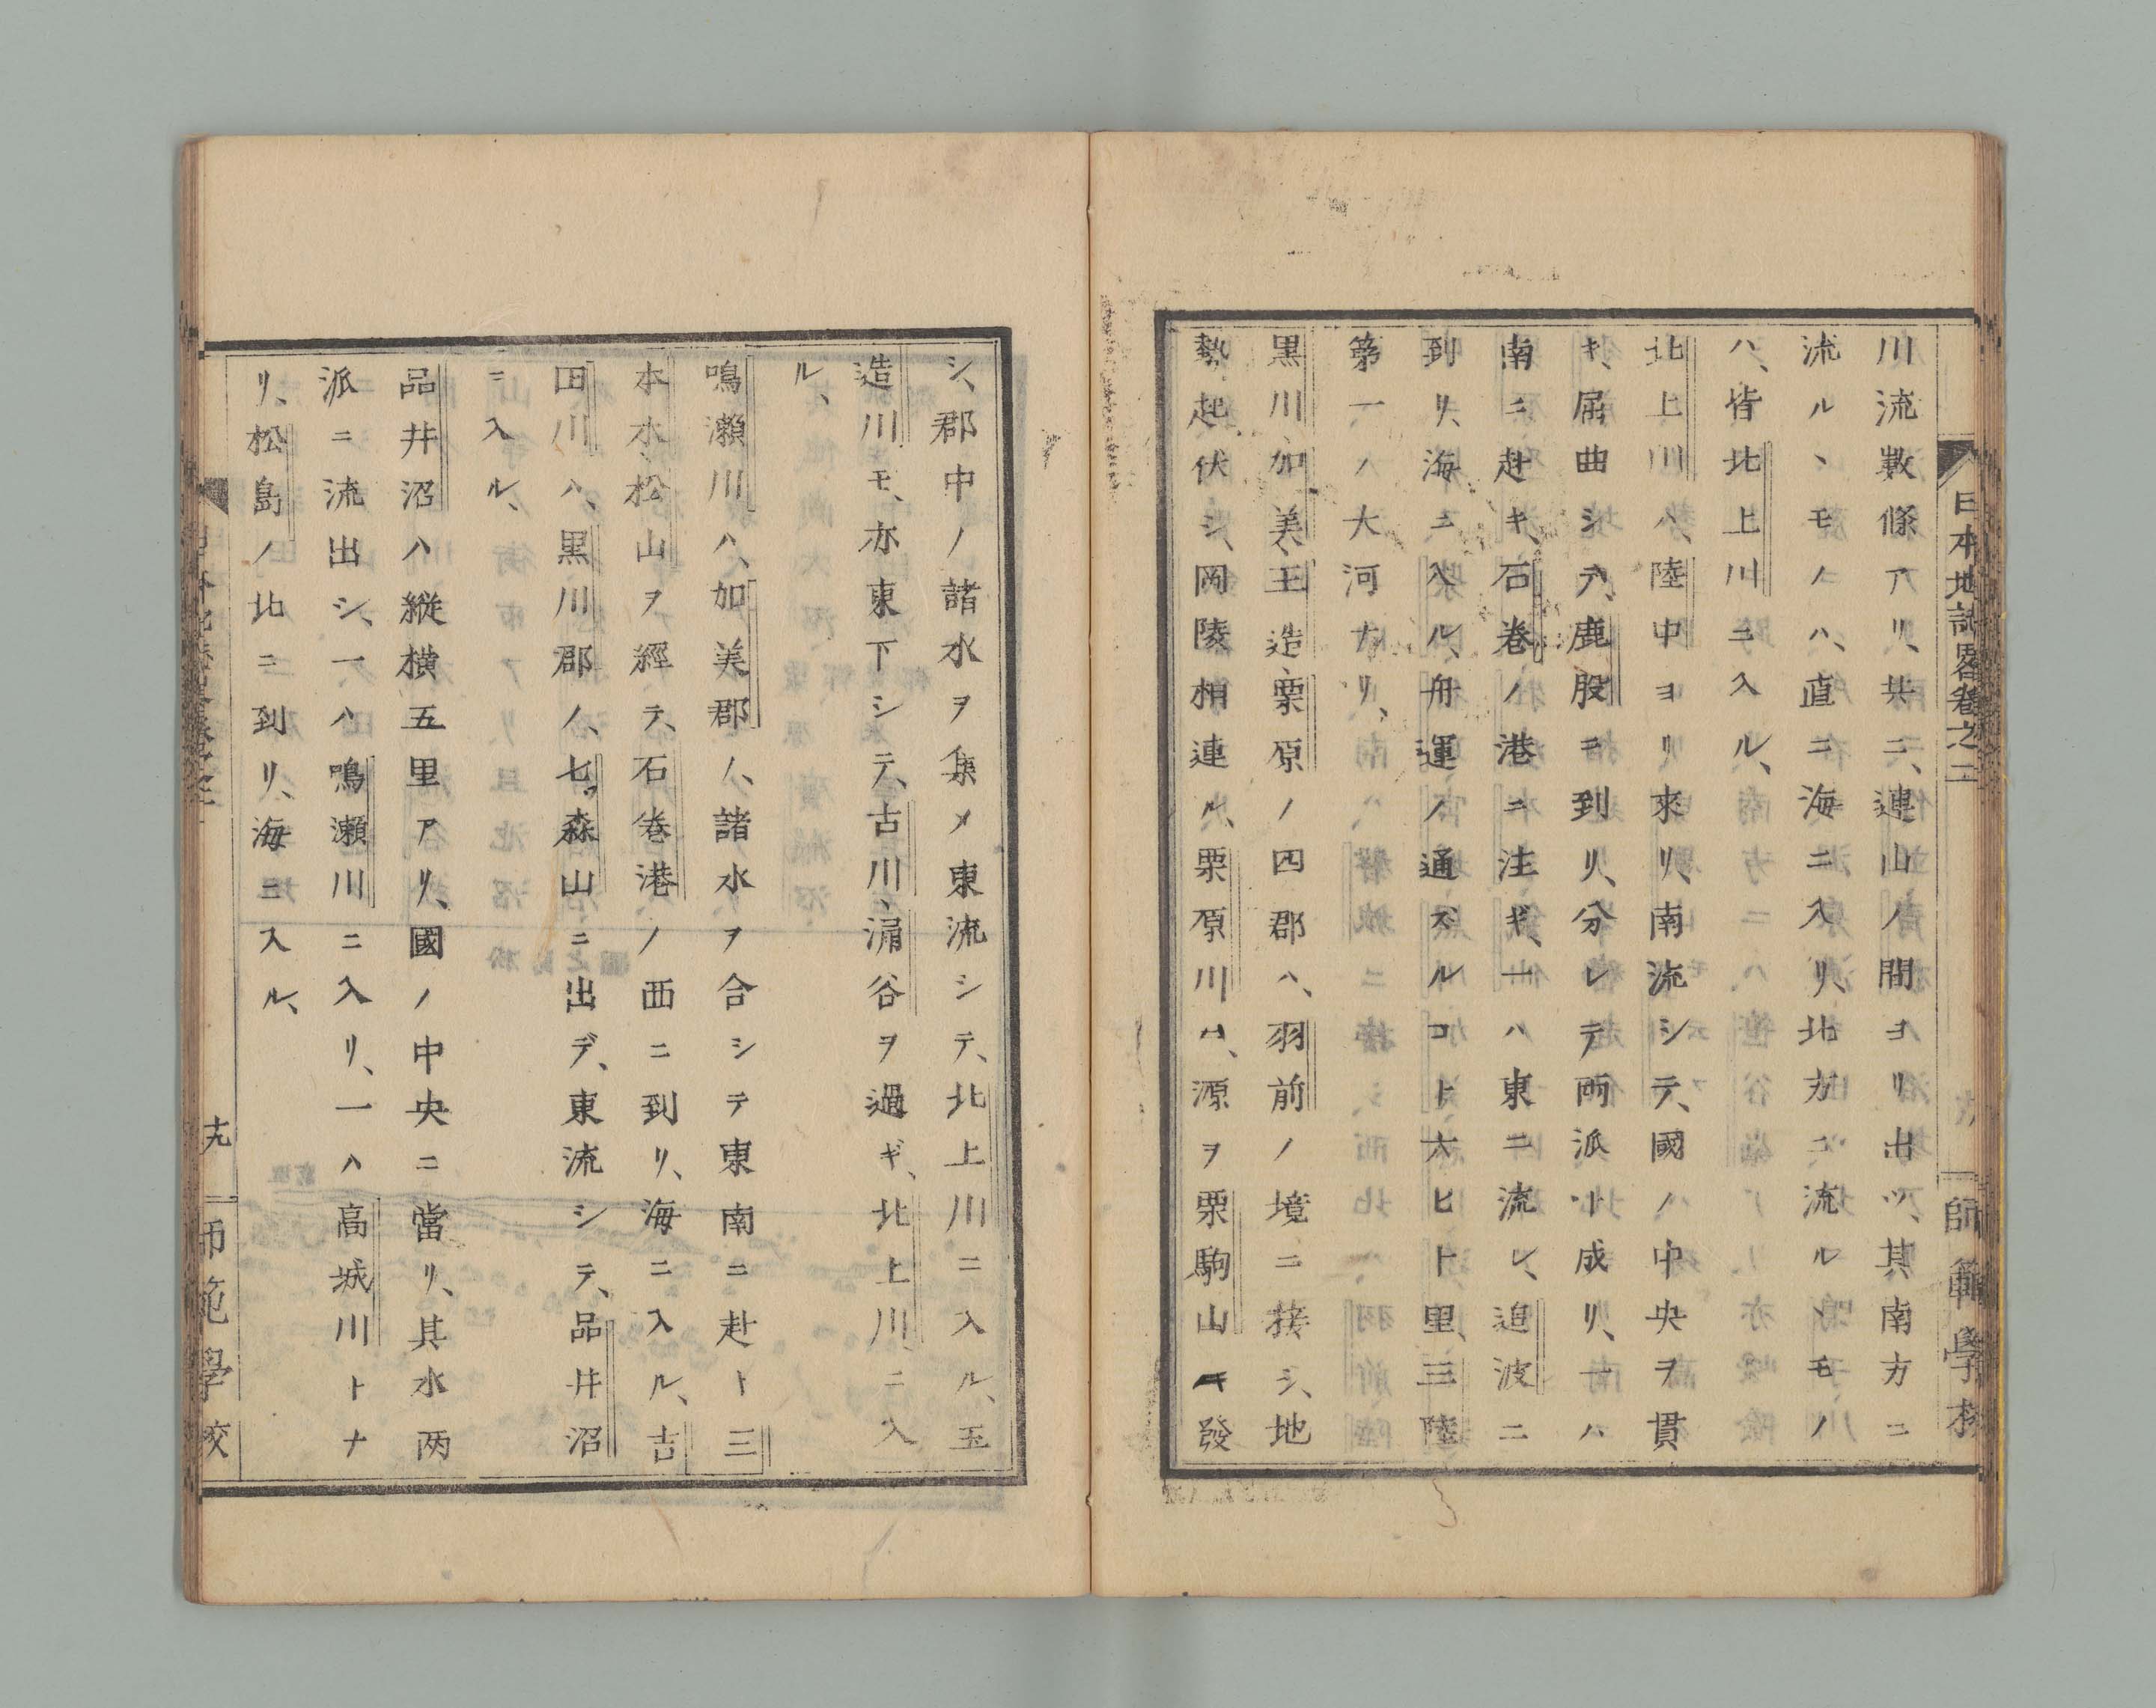 日本地誌畧巻之二
師範學校
川流數條アリ、共ニ、連山ノ間ヨリ出ツ、其南方ニ
流ル、モノハ、直ニ海ニ入リ、北方ニ流ル、モノ
ハ、皆北上川ニ入ル、
北上川ハ、陸中ヨリ來リ、南流シテ、國ノ中央ヲ貫
キ、屈曲シテ、鹿股ニ到リ、分レテ兩派ト成リ、一ハ
南ニ赴キ、石巻ノ港ニ注ギ、一ハ東ニ流レ、追波ニ
到リ、海ニ入ル、舟運ノ通ズルコト六七十里、三陸
第一ノ大河ナリ、
黒川、加美、玉造、栗原ノ四郡ハ、羽前ノ境ニ接シ、地
勢起伏シ、岡陵相連ル、栗原川ハ、源ヲ栗駒山ニ發
シ、郡中ノ諸水ヲ集メ東流シテ、北上川ニ入ル、玉
造川モ、亦東下シテ、古川、涌谷ヲ過ギ、北上川ニ入
ル、
鳴瀬川ハ、加美郡ノ、諸水ヲ合シテ東南ニ赴ト三
本木、松山ヲ經テ、石巻港ノ西ニ到リ、海ニ入ル、吉
田川ハ、黒川郡ノ、七ッ森山ニ出デ、東流シテ、品井沼
ニ入ル、
品井沼ハ縱横五里アリ、國ノ中央ニ當リ、其水兩
派ニ流出シ、一ハ鳴瀬川ニ入リ、一ハ高城川トナ
リ、松島ノ北ニ到リ、海ニ入ル、
十九
師範學校